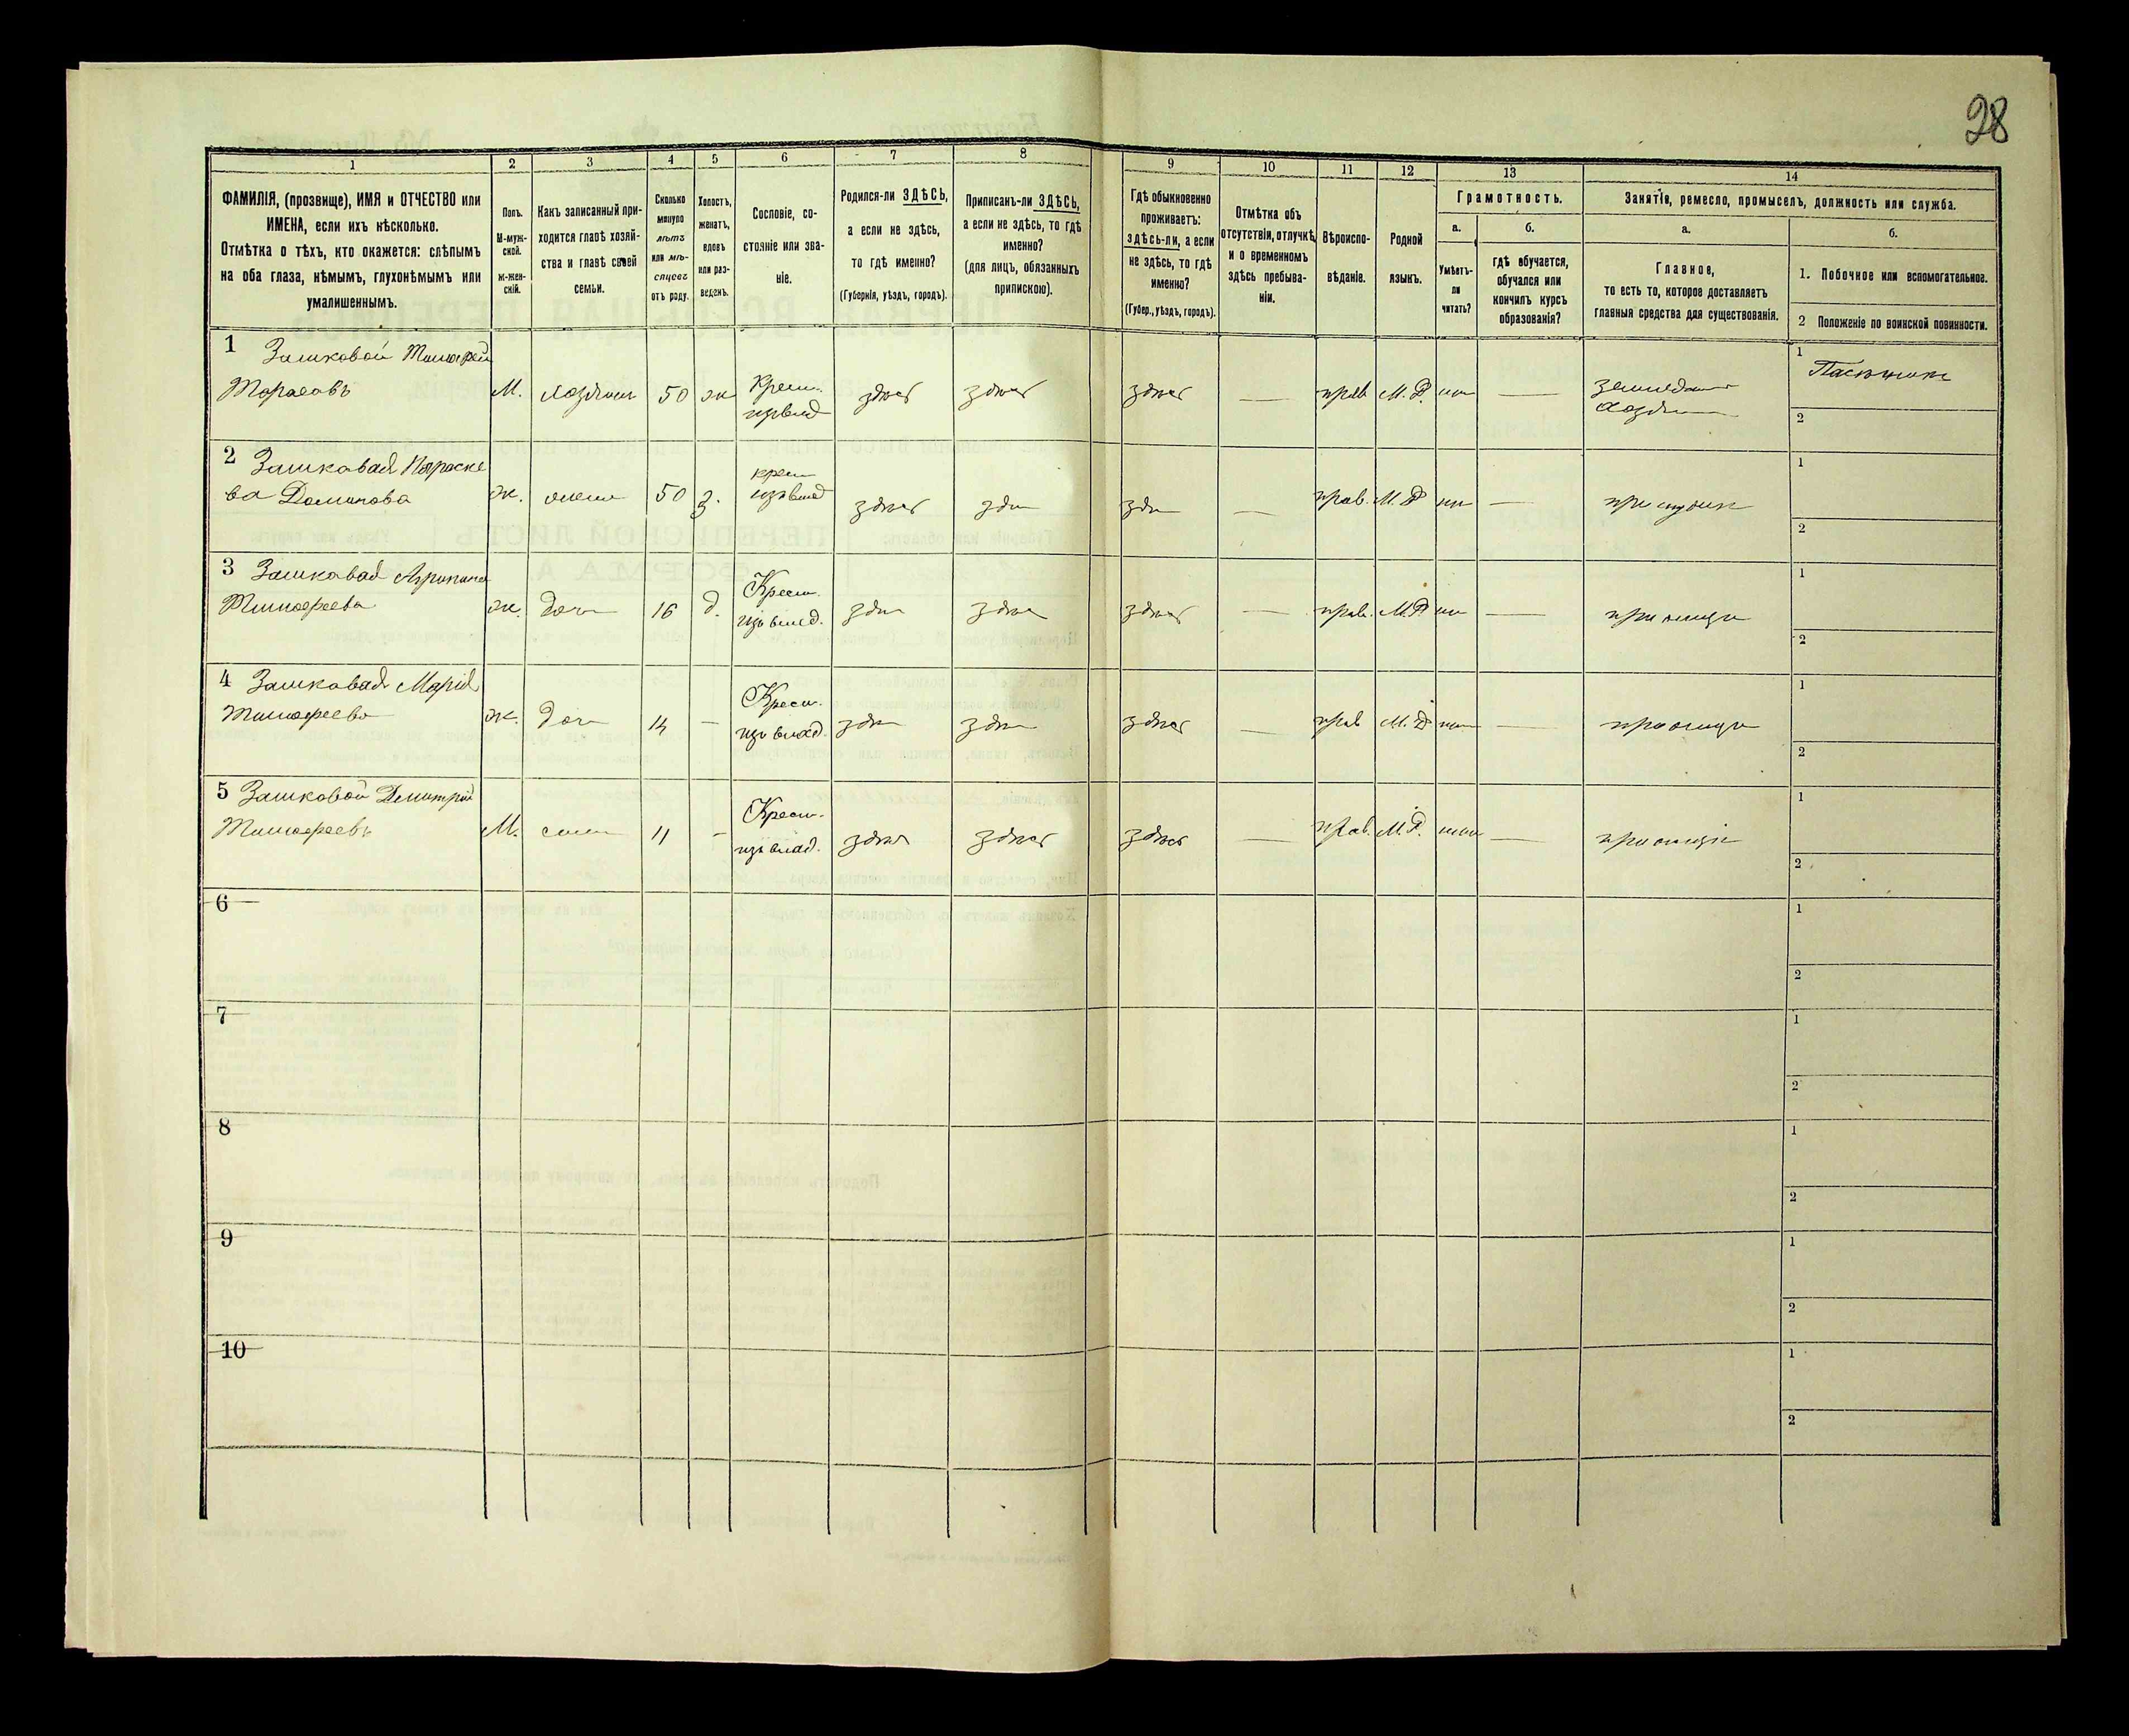 28
1
2
3
4
5
6
7
8
9
10
11
12
13
14
ФАМИЛІЯ, (прозвище), ИМЯ и ОТЧЕСТВО или
ИМЕНА, если ихъ нѣсколько.
Отмѣтка о тѣхъ, кто окажется: слѣпымъ
на оба глаза, нѣмымъ, глухонѣмымъ или
умалишеннымъ.
Полъ.
М-муж-
ской.
ж-жен-
скій.
Какъ записанный при-
ходится главѣ хозяй-
ства и главѣ своей
семьи.
Сколько
минуло
лѣтъ
или мѣ-
сяцевъ
отъ роду.
Холостъ,
женатъ,
вдовъ
или раз-
веденъ.
Сословіе, со-
стояніе или зва-
ніе.
Родился-ли ЗДѢСЬ,
а если не здѣсь,
то гдѣ именно?
(Губернія, уѣздъ, городъ).
Приписанъ-ли ЗДѢСЬ,
а если не здѣсь, то гдѣ
именно?
(для лицъ, обязанныхъ
припискою).
Гдѣ обыкновенно
проживаетъ:
здѣсь-ли, а если
не здѣсь, то гдѣ
именно?
(Губер., уѣздъ, городъ).
Отмѣтка объ
отсутствіи, отлучкѣ
и о временномъ
здѣсь пребыва-
ніи.
Вѣроиспо-
вѣданіе.
Родной
языкъ.
Грамотность.
а.
Умѣетъ-
ли
читать?
б.
гдѣ обучается,
обучался или
кончилъ курсъ
образованія?
Занятіе, ремесло, промыселъ, должность или служба.
а.
Главное,
то есть то, которое доставляетъ
главныя средства для существованія.
б.
1. Побочное или вспомогательное.
2 Положеніе по воинской повинности.
1 Зашковой Тимофей
Тарасовъ
М. хозяин 50 ж Крест. изъ влад здѣсь здѣсь здѣсь — прав М. Р. нет —
1
2
2 Зашковая Параске
ва
ж. жена 50 З. крест изъ влад здѣсь зде зде — прав. М. Р нет —
1
2
3 Зашковая Агрипина
Тимофеева
ж. дочь 16 д. Крест. изъ влад. зде здѣсь здѣсь — прав. М. Р нет —
1
2
4 Зашковая Марія
Тимофеева
ж. дочь 14 — Крест. изъ влад. зде зде здѣсь — прав М. Р нет —
1
2
5 Зашковой Димитрій
Тимофеевъ
М. сын 11 — Крест. изъ влад. здѣсь здѣсь здѣсь — прав. М. Р. нет —
1
2
6
1
2
7
1
2
8
1
2
9
1
2
10
1
2